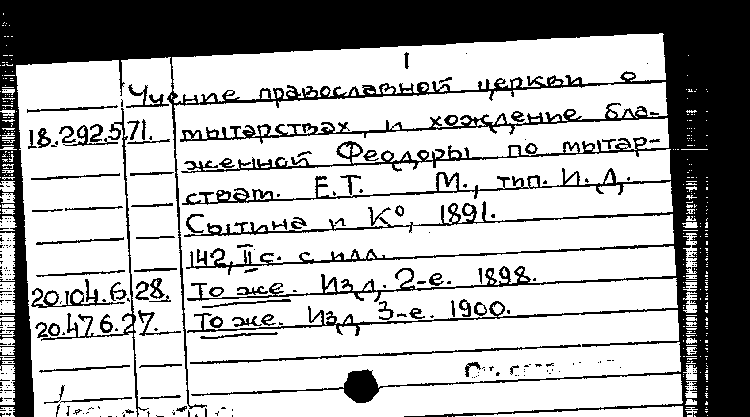 1
Учение православной церкви о
18.292.5.71. мытарствах и хождение бла-
женной Феодоры по мытар-
ствам. Е.Т. М., тип. И. Д.
Сытина и К⁰, 1891.
142, II с. с илл.
20.104.6.28. То же. Изд. 2-е. 1898.
20.47.6.27. То же. Изд. 3-е. 1900.